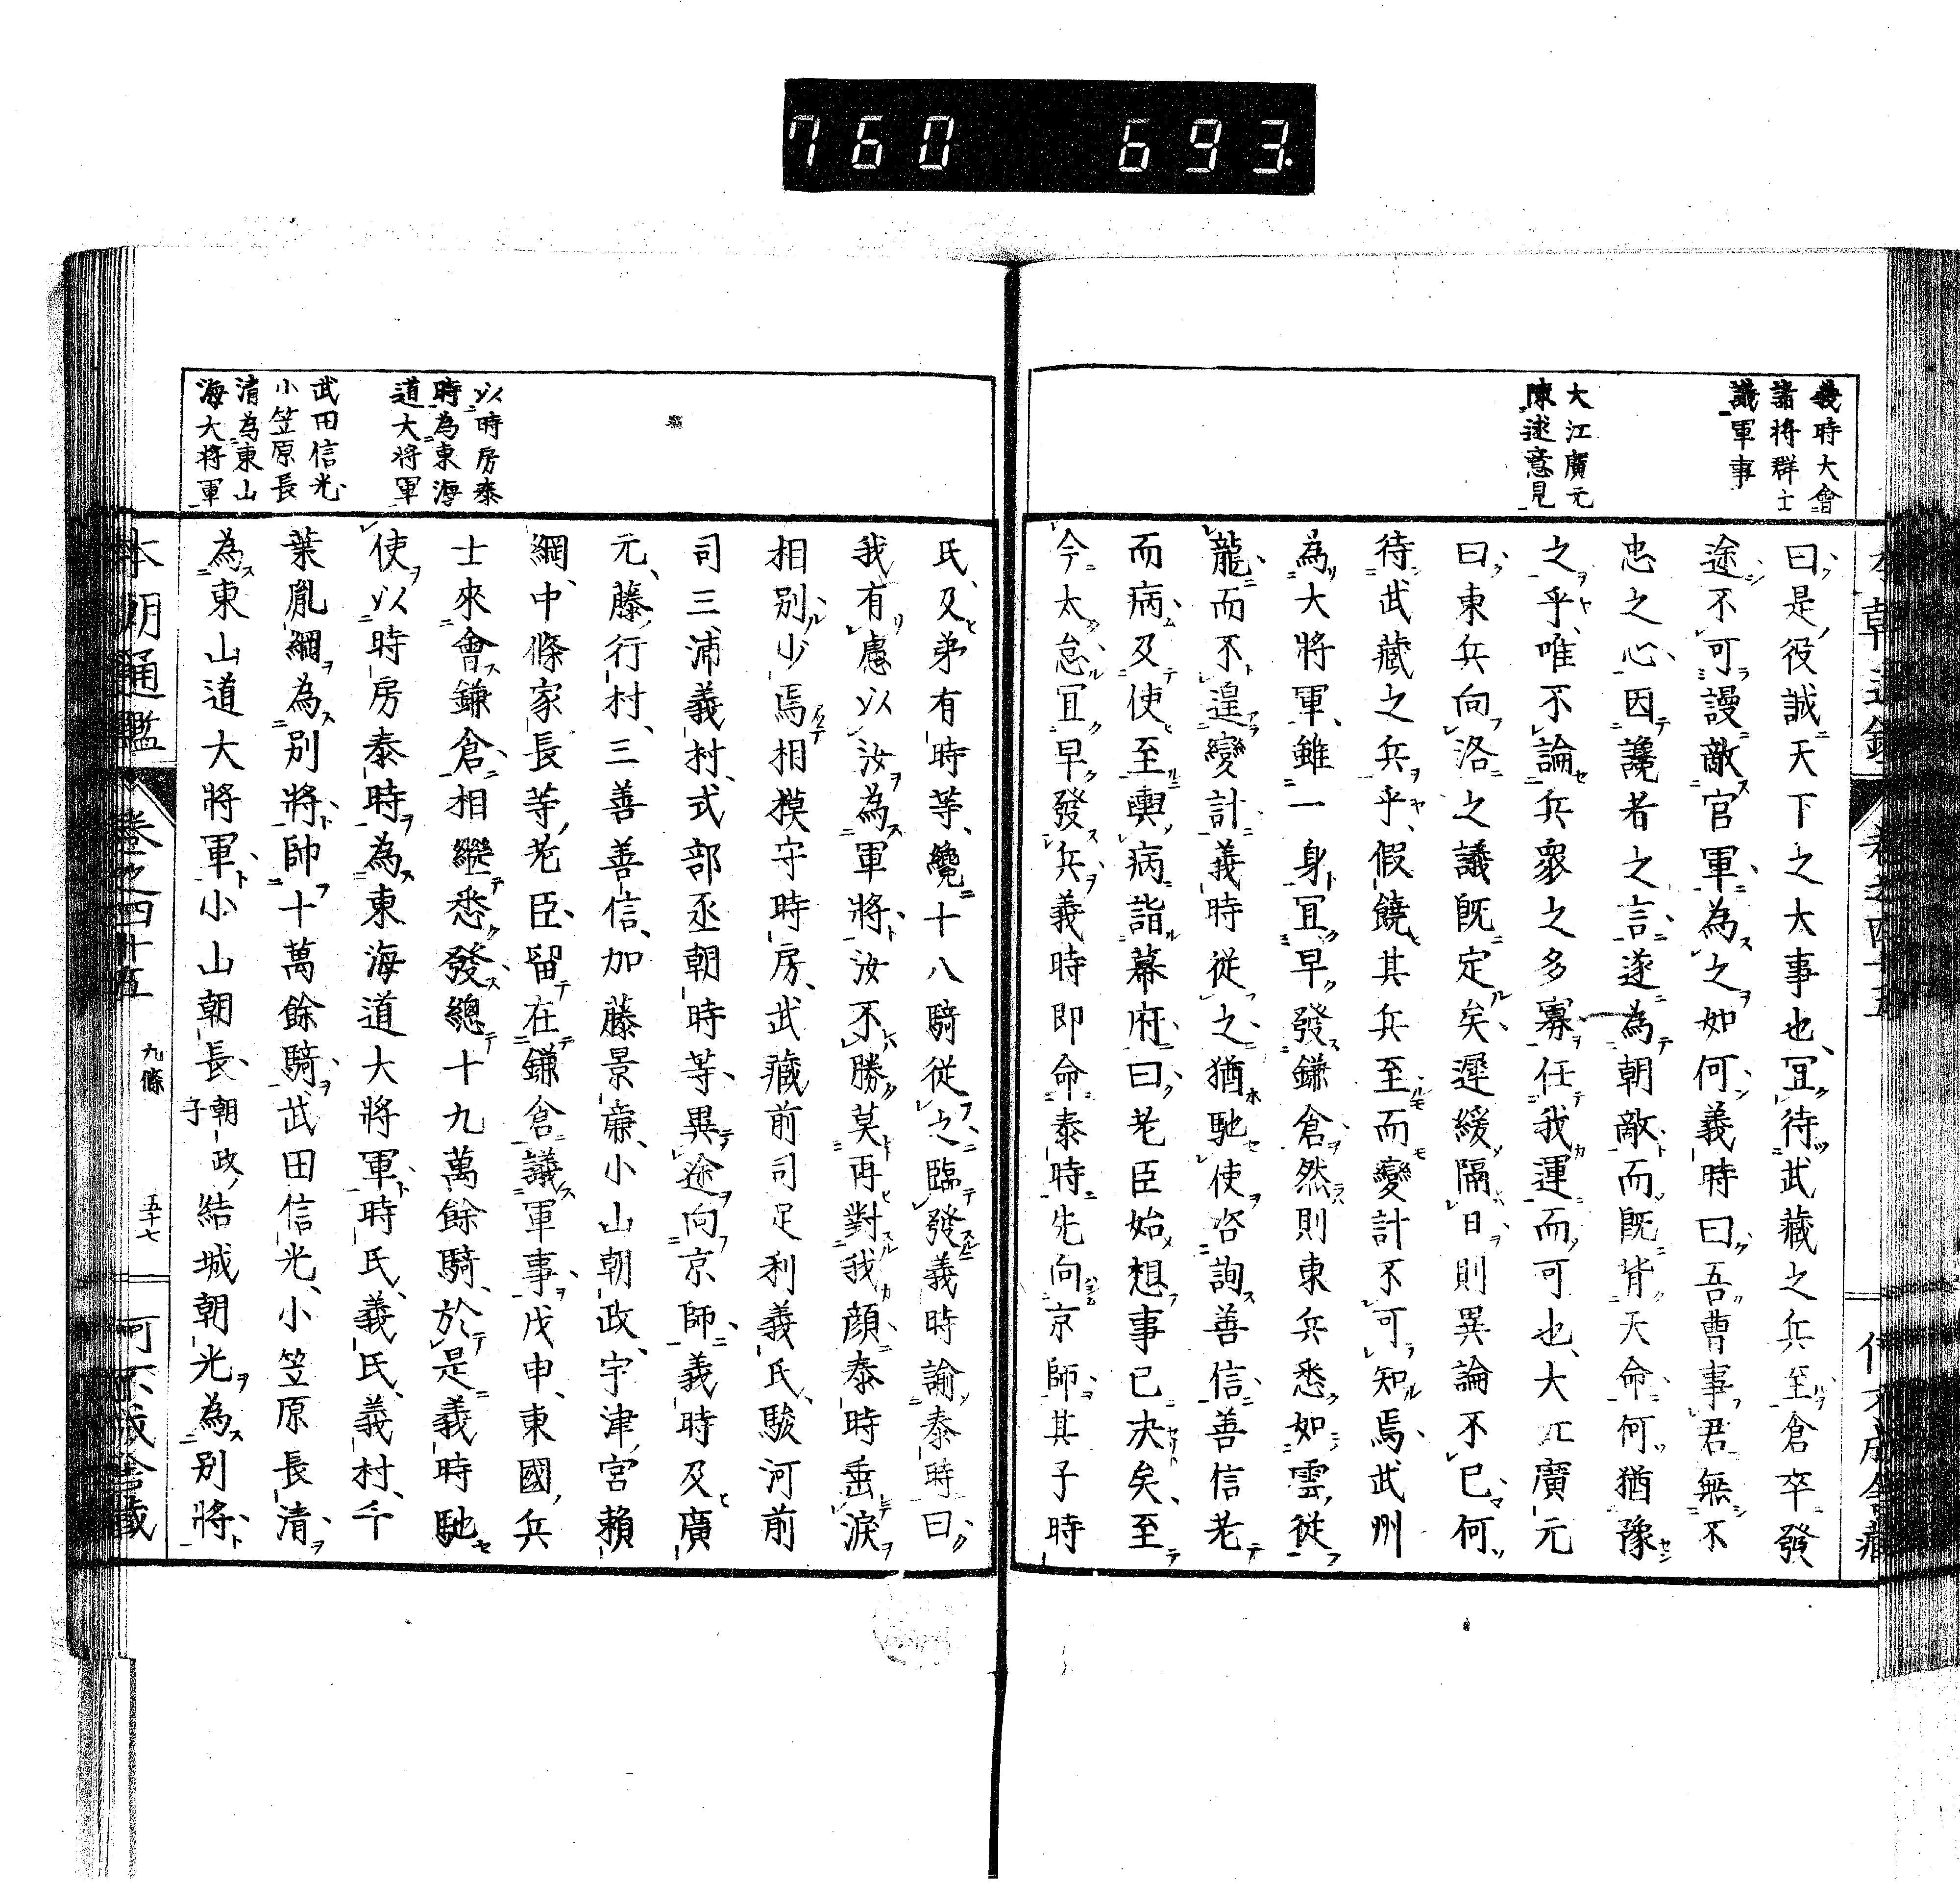 760 693.
義時大會
諸將群士
議軍事
大江廣元
陳述意見
曰是役誠天下之大事也冝待武藏之兵至倉卒發
途不可謾敵官軍為之如何義時曰吾曹事君無不
忠之心因讒者之言遂為朝敵而既背天命何猶豫
之乎唯不論兵衆之多寡任我運而可也大江廣元
曰東兵向洛之議既定矣遲緩隔日則異論不已何
待武藏之兵乎假饒其兵至而變計不可知焉武州
為大將軍雖一身冝早發鎌倉然則東兵悉如雲從
龍而不遑變計義時從之猶馳使咨詢善信善信老
而病及使至輿病詣幕府曰老臣始想事已決矣至
今太怠冝早發兵義時即命泰時先向京師其子時
以時房泰
時為東海
道大將軍
武田信光
小笠原長
清為東山
海大將軍
氏及弟有時等纔十八騎從之臨發義時諭泰時曰
我有慮以汝為軍將汝不勝莫再對我顔泰時垂淚
相別少焉相摸守時房武藏前司足利義氏駿河前
司三浦義村式部丞朝時等異途向京師義時及廣
元藤行村三善善信加藤景廉小山朝政宇津宮賴
綱中條家長等老臣留在鎌倉議軍事戊申東國兵
士來會鎌倉相繼悉發總十九萬餘騎於是義時馳
使以時房泰時為東海道大將軍時氏義氏義村千
葉胤綱為別將帥十萬餘騎武田信光小笠原長清
為東山道大將軍小山朝長朝政子結城朝光為別將
本朝通鑑 卷之四十五 九條 五十七